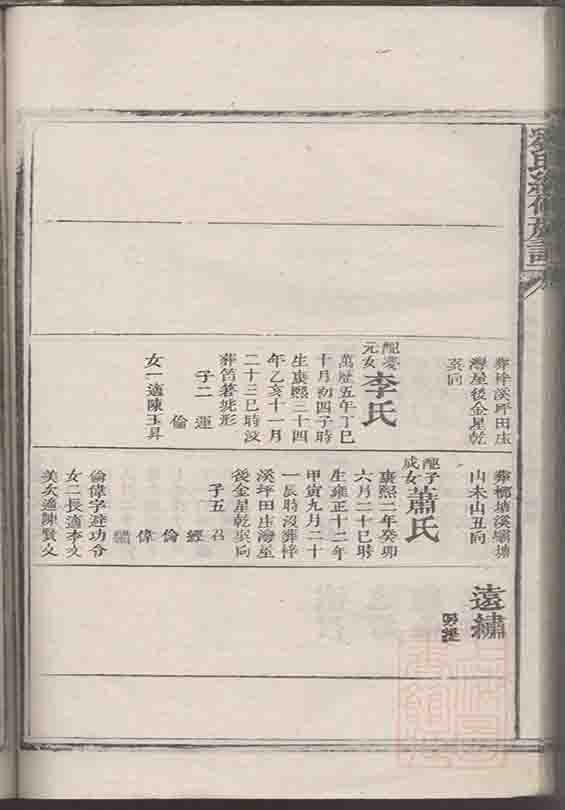 葬梓溪坪田庄
灣屋後金星乾
亥向
配慶
元女
李氏
萬歷五年丁巳
十月初四子時
生康熙三十四
年乙亥十一月
二十三巳時沒
葬筲箕坵形
子二 運
倫
女一適陳玉昇
葬榔塘溪壩塘
山未山丑向
配子
成女
蕭氏
康熙二年癸卯
六月二十巳時
生雍正十二年
甲寅九月二十
一辰時沒葬梓
溪坪田庄灣屋
後金星乾亥向
子五 召
經
倫
偉
倫偉字逰功合
女二長適李文
美次適陳賢文
遠繡